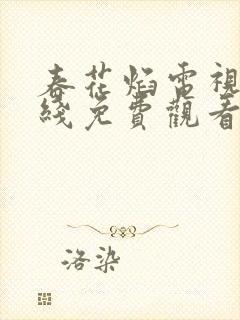 春花焰電視
綫免費觀看
洛染